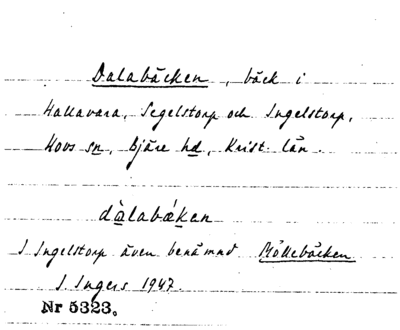 Dalabäcken, bäck i
Hallavara, Segelstorp och Ingelstorp,
Hovs sn, Bjäre hd, Krist. län.
dàlabǽken
I Ingelstorp även benämnd Möllebäcken
I. Ingers 1947.
Nr 5323.